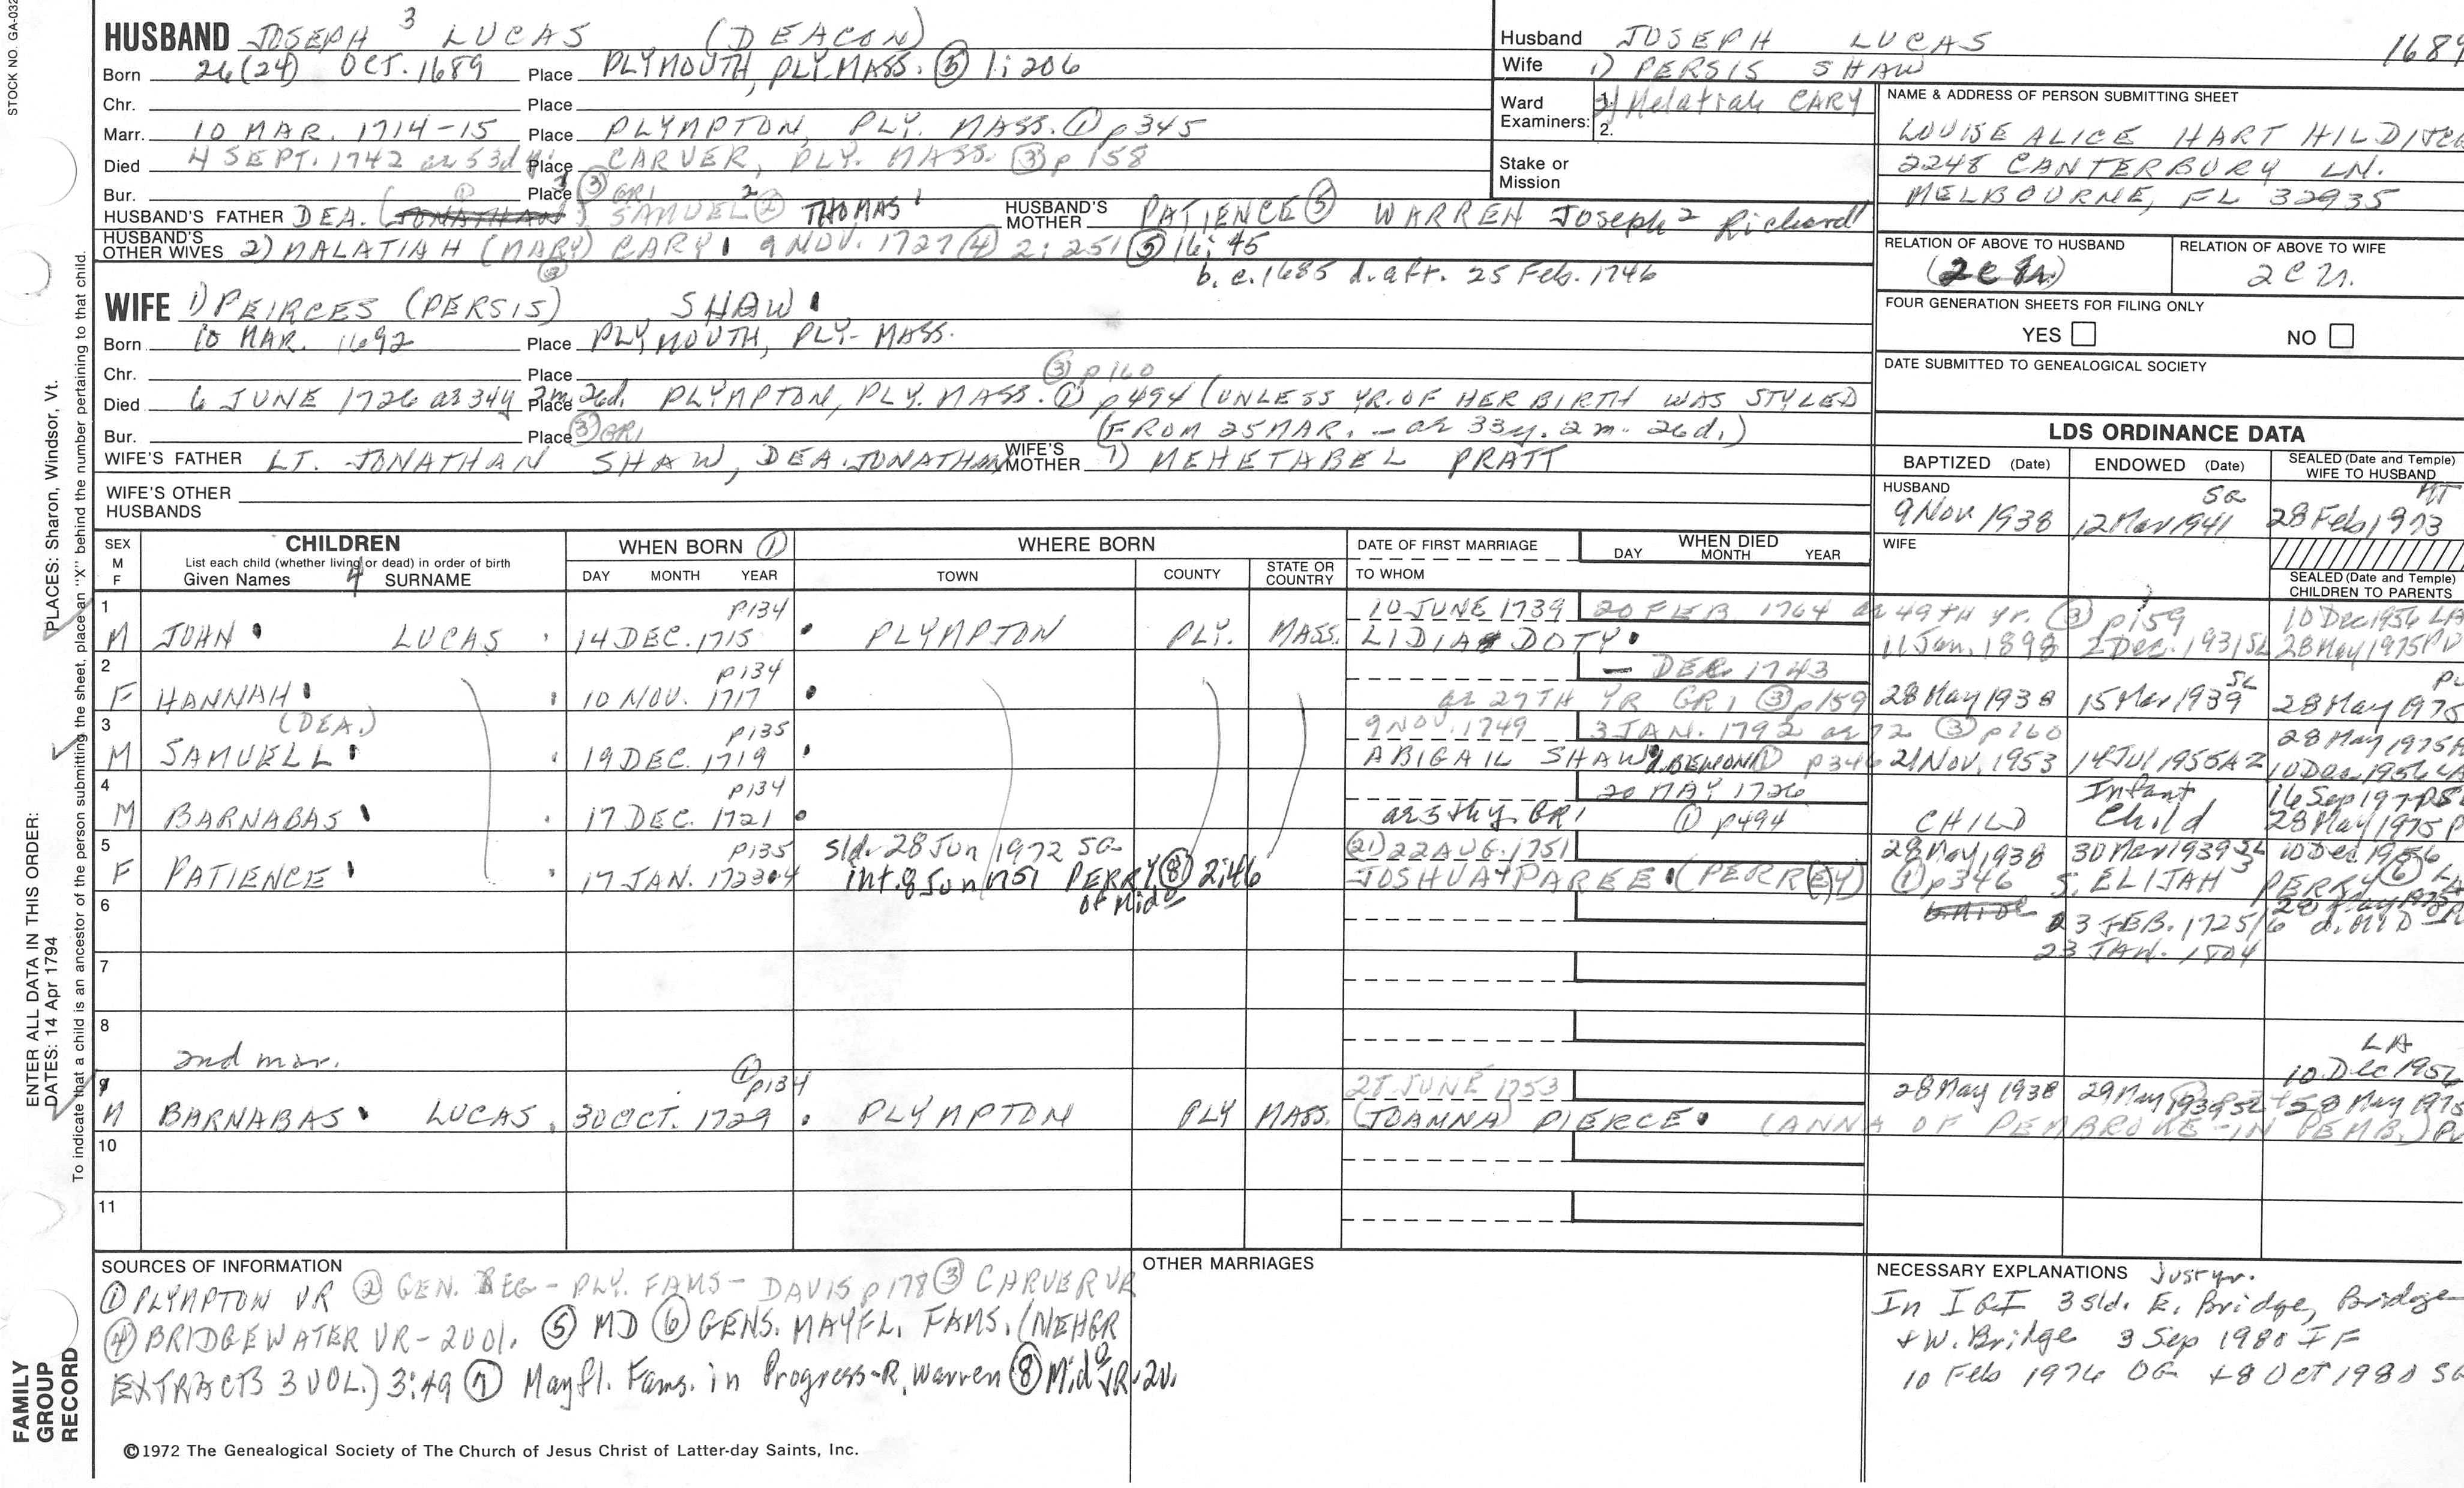 STOCK NO. GA-032
HUSBAND JOSEPH 3 LUCAS (DEACON)
Born 26(24) OCT. 1689 Place PLYMOUTH, PLY. MASS. (5) 1:206
Chr. Place
Marr. 10 MAR. 1714-15 Place PLYMPTON, PLY. MASS. (1) p345
Died 4 SEPT. 1742 Place CARVER, PLY. MASS. (3) p158
Bur. Place (3) GR1
HUSBAND'S FATHER DEA. (JONATHAN) SAMUEL 2 (2) THOMAS 1 HUSBAND'S MOTHER PATIENCE (5) WARREN Joseph 2 Richard 1
HUSBAND'S OTHER WIVES 2) MALATIAH (MARY) CARY 9 NOV. 1727 (4) 2:251 (5) 16:45
b. c.1685 d. aft. 25 Feb. 1746
WIFE 1) PEIRCES (PERSIS) SHAW
Born 10 MAR. 1692 Place PLYMOUTH, PLY- MASS.
Chr. Place (3) p160
Died 6 JUNE 1726 ae 34y 2m. 26d. Place PLYMPTON, PLY. MASS. (1) p494 (UNLESS YR. OF HER BIRTH WAS STYLED
Bur. Place (3) GR1 (FROM 25 MAR. - ae 33y. 2m. 26d.)
WIFE'S FATHER LT. JONATHAN SHAW, DEA. JONATHAN WIFE'S MOTHER 1) MEHETABEL PRATT
WIFE'S OTHER HUSBANDS
Husband JOSEPH LUCAS 1689
Wife 1) PERSIS SHAW
Ward Examiners: 1. 2) Melatiah CARY
2.
Stake or Mission
NAME & ADDRESS OF PERSON SUBMITTING SHEET
LOUISE ALICE HART
2248 CANTERBURY LN.
MELBOURNE, FL 32935
RELATION OF ABOVE TO HUSBAND RELATION OF ABOVE TO WIFE
FOUR GENERATION SHEETS FOR FILING ONLY
YES NO
DATE SUBMITTED TO GENEALOGICAL SOCIETY
LDS ORDINANCE DATA
BAPTIZED (Date) ENDOWED (Date) SEALED (Date and Temple) WIFE TO HUSBAND
HUSBAND 9 Nov 1938 12 Mar 1941 28 Feb 1973
WIFE
SEALED (Date and Temple) CHILDREN TO PARENTS
SEX M F CHILDREN List each child (whether living or dead) in order of birth Given Names 4 SURNAME
WHEN BORN (1) DAY MONTH YEAR
WHERE BORN TOWN COUNTY STATE OR COUNTRY
DATE OF FIRST MARRIAGE TO WHOM
WHEN DIED DAY MONTH YEAR
1 p134 10 JUNE 1739 20 FEB 1764 ae 49TH yr. (3) p159 10 Dec 1956 LA
M JOHN LUCAS 14 DEC. 1715 PLYMPTON PLY. MASS. LIDIA DOTY 11 Jan. 1898 2 Dec. 1931 SL 28 May 1975 PV
2 p134 - DEC. 1743
F HANNAH 10 NOV. 1717 ae 27TH YR GR1 (3) p159 28 May 1938 15 Mar 1939 SL 28 May 1975
3 (DEA.) p135 9 NOV. 1749 3 JAN. 1792 ae 72 (3) p160 28 May 1975
M SAMUELL 19 DEC. 1719 ABIGAIL SHAW (1) p346 21 Nov. 1953 14 Jul 1955 AZ 10 Dec 1956 LA
4 p134 20 MAY 1726 Infant
M BARNABAS 17 DEC. 1721 ae 5thy. GR1 (1) p494 CHILD Child 28 May 1975
5 p135 sld. 28 Jun 1972 SG (21) 22 AUG. 1751 28 May 1938 30 Mar 1939 SL 10 Dec 1956
F PATIENCE 17 JAN. 1723-4 int. 8 Jun 1751 PERRY (8) 2:46 JOSHUA PAREE (PERREY) (1) p346 S. ELIJAH 3 PERRY (6)
of Mid
6 23 FEB. 1725/6
23 JAN. 1804
7
8
2nd mar.
9 (1) p134 25 JUNE 1753 LA 10 Dec 1956
M BARNABAS LUCAS 30 OCT. 1729 PLYMPTON PLY MASS. (JOANNA) PIERCE (ANNA OF PEMBROKE-IN PEMB.) 28 May 1938
10
11
SOURCES OF INFORMATION
(1) PLYMPTON VR (2) GEN. REG - PLY. FAMS - DAVIS p178 (3) CARVER VR
(4) BRIDGEWATER VR - 2 vol. (5) MD (6) GENS. MAYFL. FAMS. (NEHGR
EXTRACTS 3 VOL.) 3:49 (7) Mayfl. Fams. in Progress-R. Warren (8) Mido VR-2v.
OTHER MARRIAGES
NECESSARY EXPLANATIONS Just yr.
In IGI 3 sld. E. Bridge, Bridge
+ W. Bridge 3 Sep 1980 IF
10 Feb 1976 OG + 8 Oct 1980 SG
©1972 The Genealogical Society of The Church of Jesus Christ of Latter-day Saints, Inc.
FAMILY GROUP RECORD
ENTER ALL DATA IN THIS ORDER:
DATES: 14 Apr 1794 PLACES: Sharon, Windsor, Vt.
To indicate that a child is an ancestor of the person submitting the sheet, place an "X" behind the number pertaining to that child.